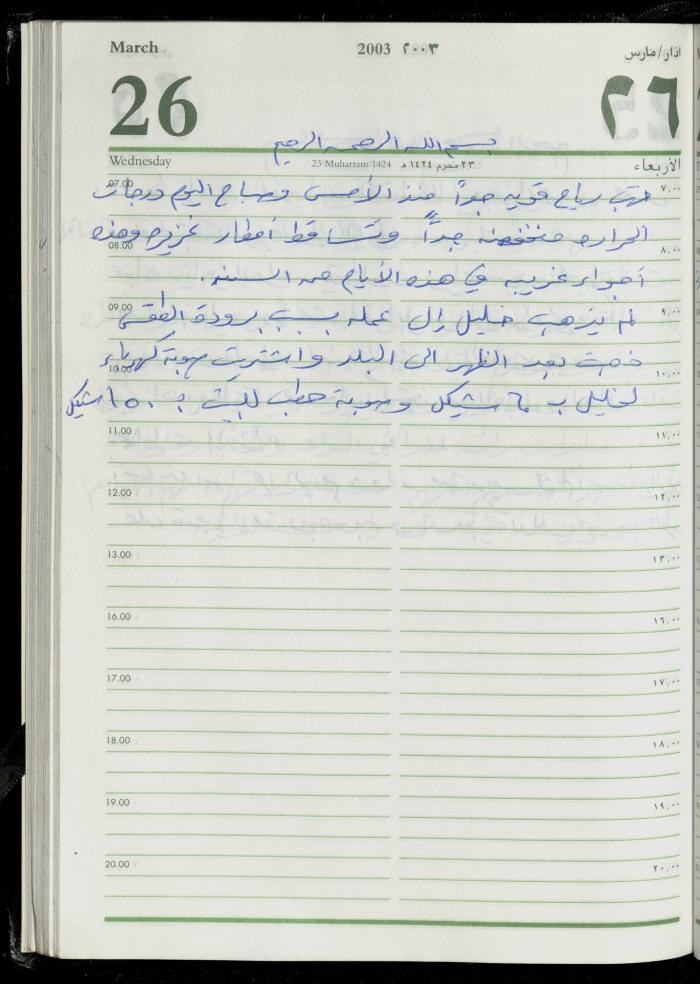 March 2003 ٢٠٠٣ اذار/مارس
26 ٢٦
بسم الله الرحمن الرحيم
Wednesday 23 Muharram 1424 ٢٣ محرم ١٤٢٤ هـ الأربعاء
07.00 تهب رياح قويه جداً منذ الأمس وصباح اليوم درجات ٧,٠٠
الحراره منخفضه جداً وتتساقط أمطار غزيره وهذه
08.00 ٨,٠٠
أجواء غريبه في هذه الأيام من السنه.
09.00 لم يذهب خليل إلى عمله بسبب برودة الطقس ٩,٠٠
ذهبت بعد الظهر الى البلد واشتريت صوبة كهرباء
10.00 ١٠,٠٠
لخليل ب ٦٠ شيكل وصوبة حطب للبيت ب ١٥٠ شيكل
11.00 ١١,٠٠
12.00 ١٢,٠٠
13.00 ١٣,٠٠
16.00 ١٦,٠٠
17.00 ١٧,٠٠
18.00 ١٨,٠٠
19.00 ١٩,٠٠
20.00 ٢٠,٠٠